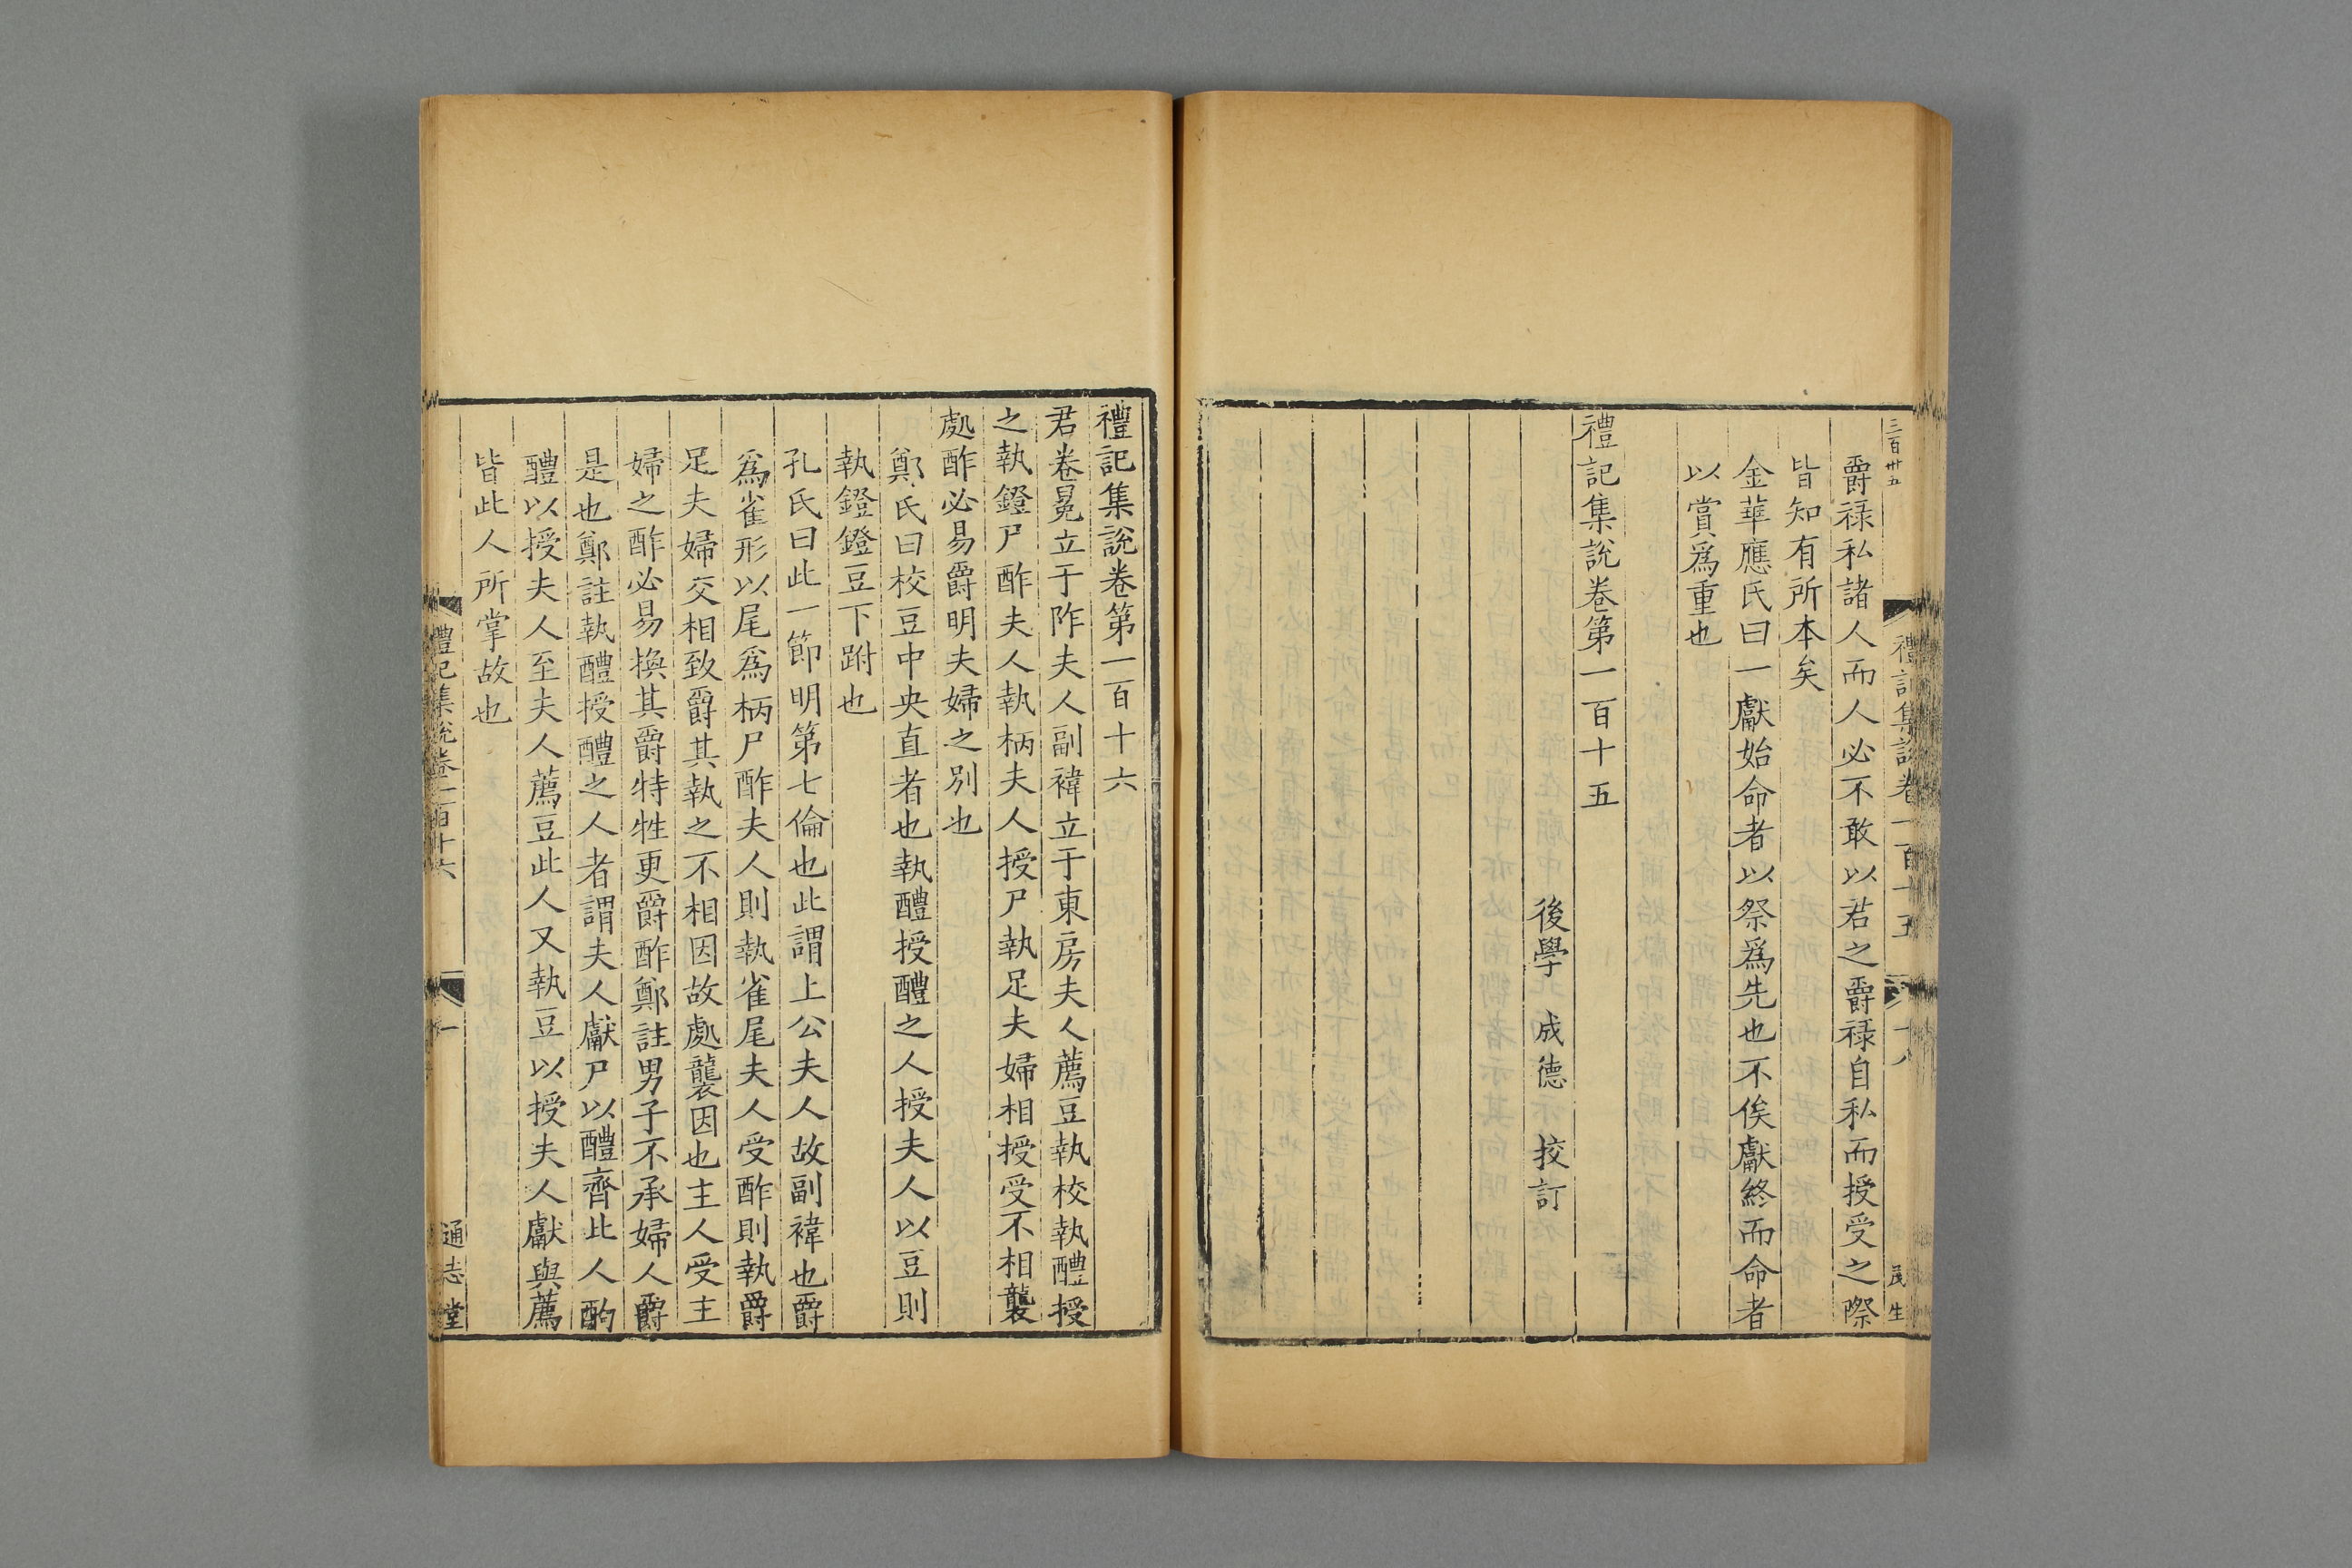 三百卅五
禮記集說卷一百十五
十八
茂生
爵祿私諸人而人必不敢以君之爵祿自私而授受之際
皆知有所本矣
金華應氏曰一獻始命者以祭爲先也不俟獻終而命者
以賞爲重也
禮記集說卷第一百十五
後學 成德 挍訂
禮記集說卷第一百十六
君卷冕立于阼夫人副褘立于東房夫人薦豆執校執醴授
之執鐙尸酢夫人執柄夫人授尸執足夫婦相授受不相襲
處酢必易爵明夫婦之別也
鄭氏曰校豆中央直者也執醴授醴之人授夫人以豆則
執鐙鐙豆下跗也
孔氏曰此一節明第七倫也此謂上公夫人故副褘也爵
爲雀形以尾爲柄尸酢夫人則執雀尾夫人受酢則執爵
足夫婦交相致爵其執之不相因故處襲因也主人受主
婦之酢必易換其爵特牲更爵酢鄭註男子不承婦人爵
是也鄭註執醴授醴之人者謂夫人獻尸以醴齊此人酌
醴以授夫人至夫人薦豆此人又執豆以授夫人獻與薦
皆此人所掌故也
禮記集說卷一百十六
一
通志堂